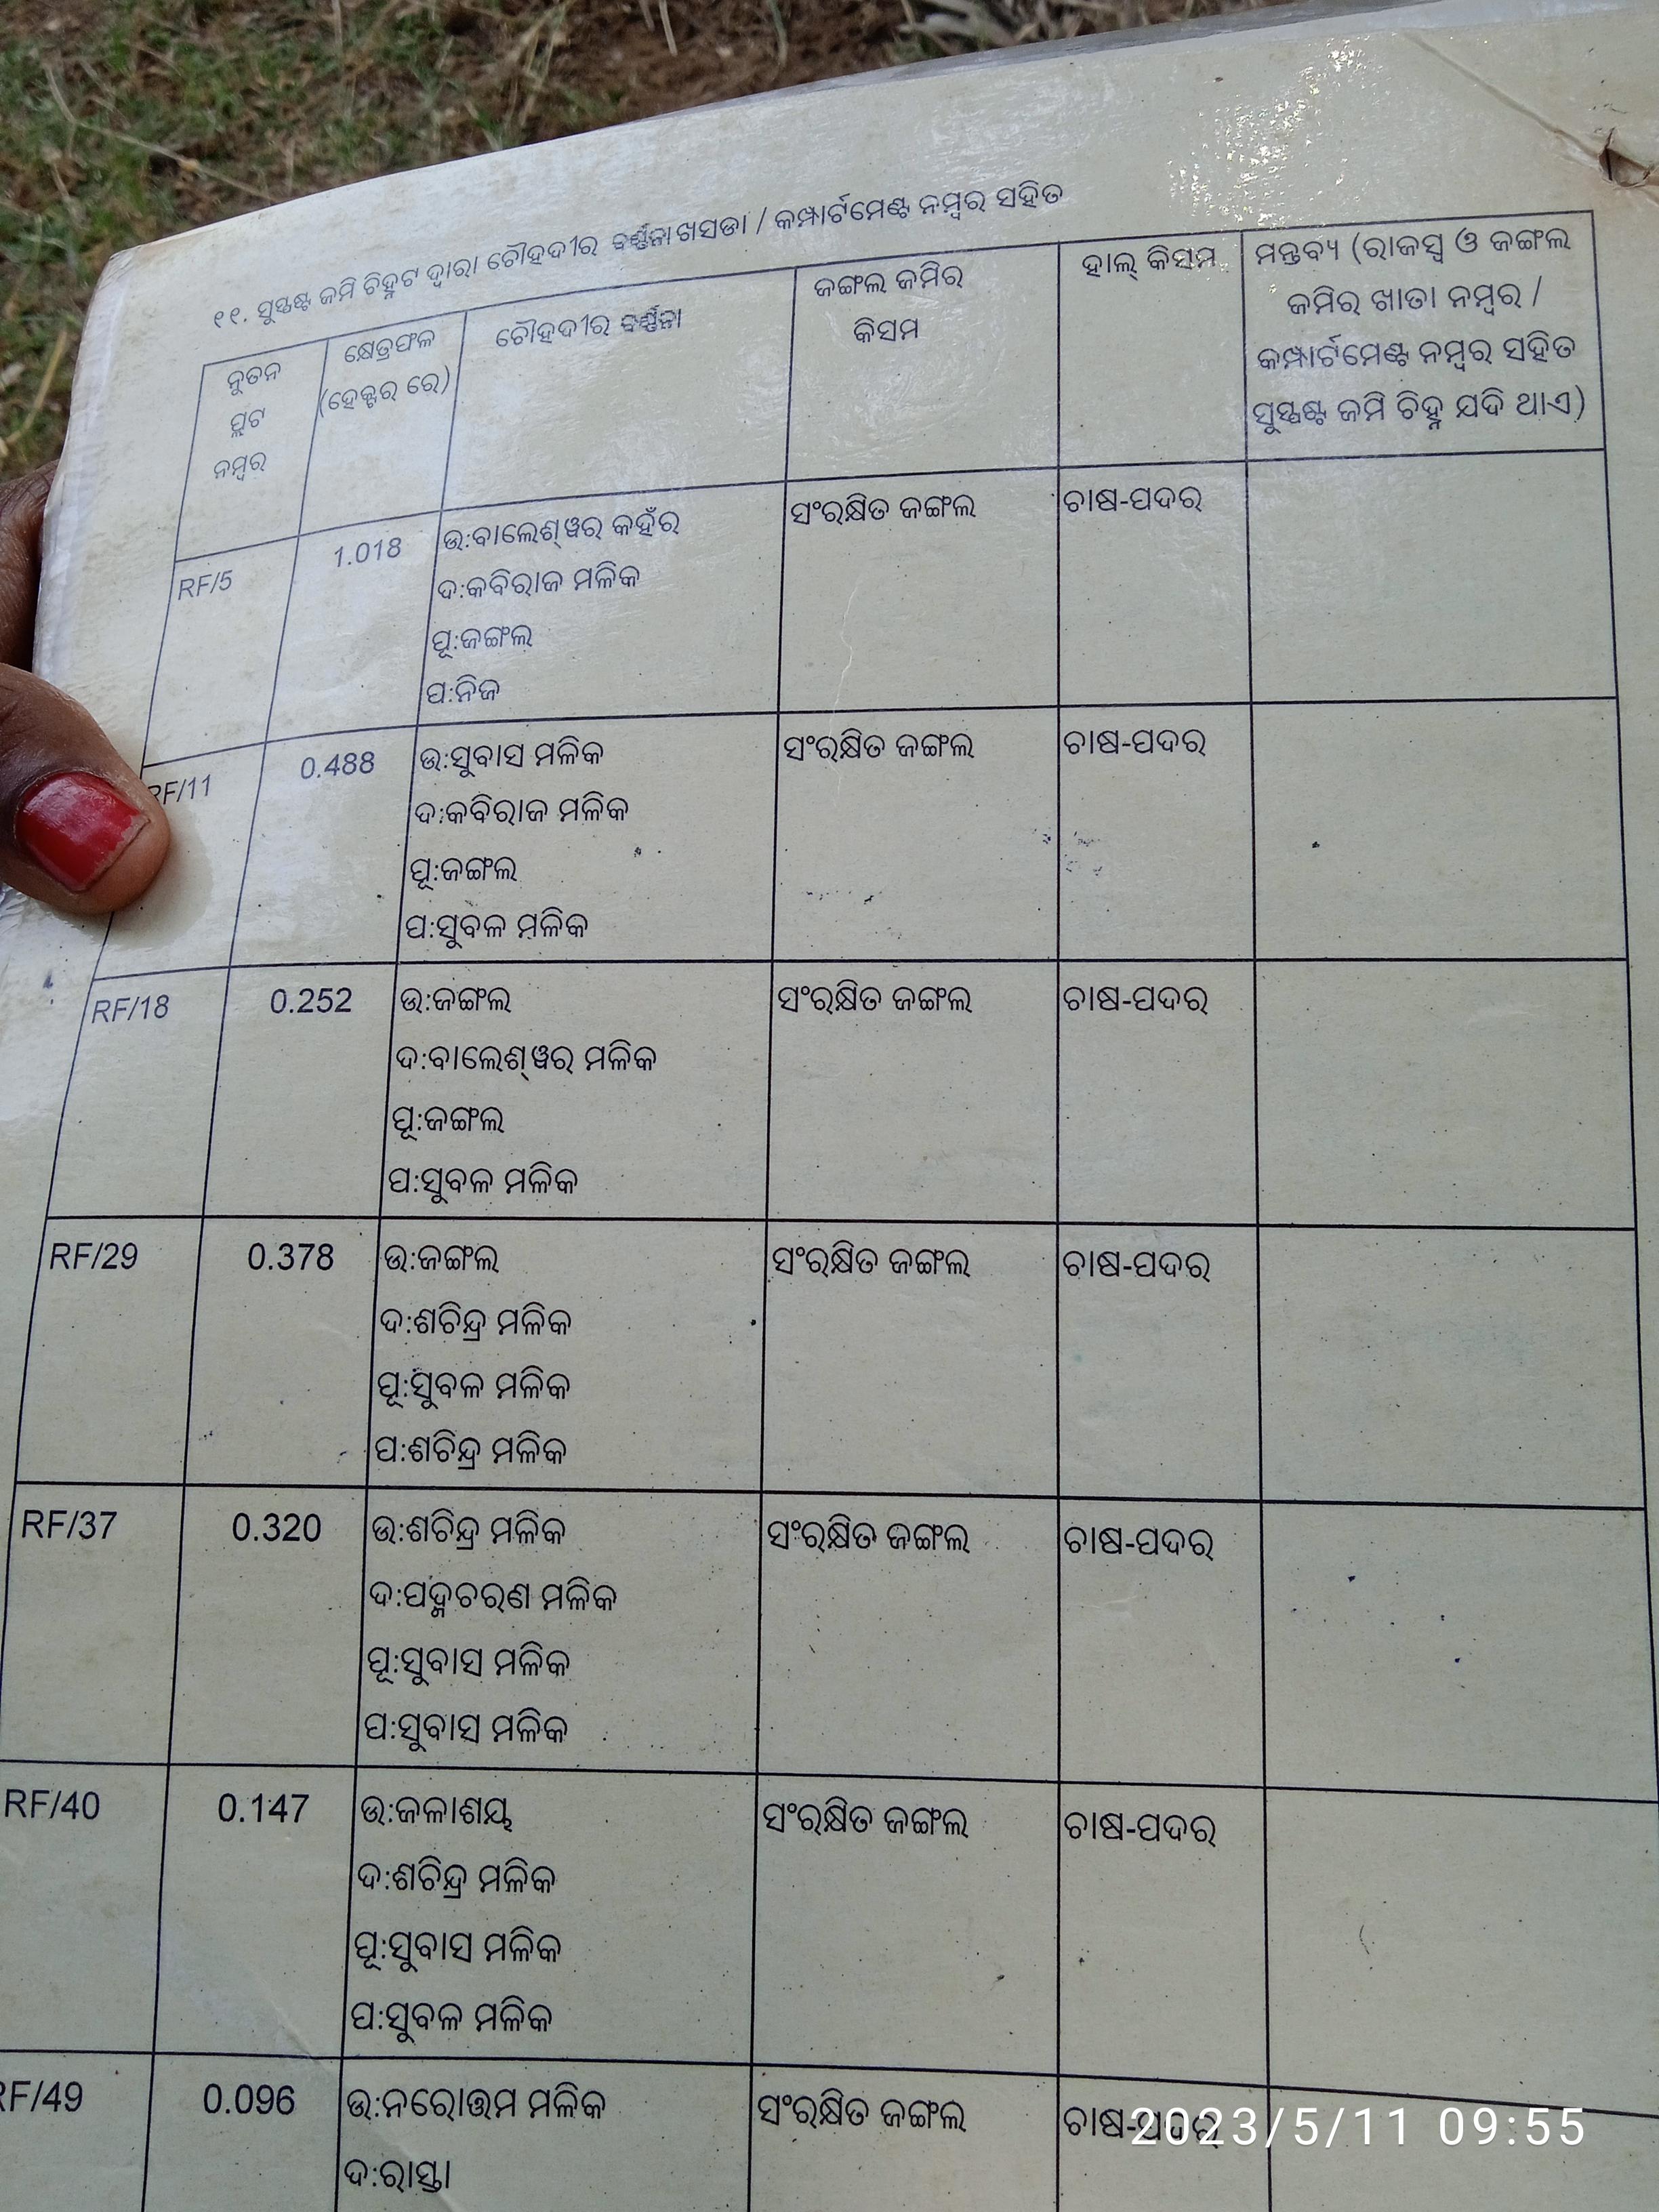 ୧୧. ସୁସ୍ପଷ୍ଟ ଜମି ଚିହ୍ନଟ ଦ୍ୱାରା ଚୌହଦୀର ବର୍ଣ୍ଣନା ଖସଡା / କମ୍ପାର୍ଟମେଣ୍ଟ ନମ୍ବର ସହିତ
ନୁତନ ପ୍ଲଟ ନମ୍ବର
କ୍ଷେତ୍ରଫଳ (ହେକ୍ଟର ରେ)
ଚୌହଦୀର ବର୍ଣ୍ଣନା
ଜଙ୍ଗଲ ଜମିର କିସମ
ହାଲ୍ କିସମ
ମନ୍ତବ୍ୟ (ରାଜସ୍ୱ ଓ ଜଙ୍ଗଲ
ଜମିର ଖାତା ନମ୍ବର /
କମ୍ପାର୍ଟମେଣ୍ଟ ନମ୍ବର ସହିତ
ସୁସ୍ପଷ୍ଟ ଜମି ଚିହ୍ନ ଯଦି ଥାଏ)
RF/5 1.018 ଉ:ବାଲେଶ୍ୱର କହଁର ସଂରକ୍ଷିତ ଜଙ୍ଗଲ ଚାଷ-ପଦର
ଦ:କବିରାଜ ମଳିକ
ପୂ:ଜଙ୍ଗଲ
ପ:ନିଜ
RF/11 0.488 ଉ:ସୁବାସ ମଳିକ ସଂରକ୍ଷିତ ଜଙ୍ଗଲ ଚାଷ-ପଦର
ଦ:କବିରାଜ ମଳିକ
ପୂ:ଜଙ୍ଗଲ
ପ:ସୁବଳ ମଳିକ
RF/18 0.252 ଉ:ଜଙ୍ଗଲ ସଂରକ୍ଷିତ ଜଙ୍ଗଲ ଚାଷ-ପଦର
ଦ:ବାଲେଶ୍ୱର ମଳିକ
ପୂ:ଜଙ୍ଗଲ
ପ:ସୁବଳ ମଳିକ
RF/29 0.378 ଉ:ଜଙ୍ଗଲ ସଂରକ୍ଷିତ ଜଙ୍ଗଲ ଚାଷ-ପଦର
ଦ:ଶଚିନ୍ଦ୍ର ମଳିକ
ପୂ:ସୁବଳ ମଳିକ
ପ:ଶଚିନ୍ଦ୍ର ମଳିକ
RF/37 0.320 ଉ:ଶଚିନ୍ଦ୍ର ମଳିକ ସଂରକ୍ଷିତ ଜଙ୍ଗଲ ଚାଷ-ପଦର
ଦ:ପଦ୍ମଚରଣ ମଳିକ
ପୂ:ସୁବାସ ମଳିକ
ପ:ସୁବାସ ମଳିକ
RF/40 0.147 ଉ:ଜଳାଶୟ ସଂରକ୍ଷିତ ଜଙ୍ଗଲ ଚାଷ-ପଦର
ଦ:ଶଚିନ୍ଦ୍ର ମଳିକ
ପୂ:ସୁବାସ ମଳିକ
ପ:ସୁବଳ ମଳିକ
RF/49 0.096 ଉ:ନରୋତ୍ତମ ମଳିକ ସଂରକ୍ଷିତ ଜଙ୍ଗଲ ଚାଷ-ପଦର
ଦ:ରାସ୍ତା
2023/5/11 09:55